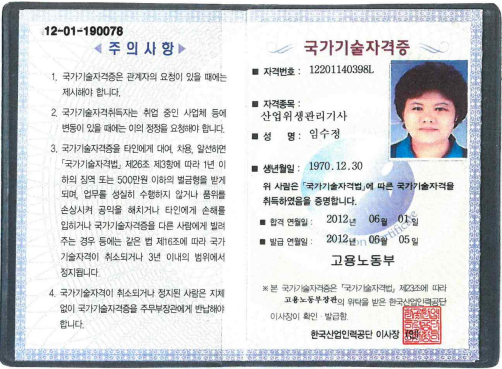 12-01-190078
◀ 주 의 사 항 ▶
1. 국가기술자격증은 관계자의 요청이 있을 때에는
제시해야 합니다.
2. 국가기술자격취득자는 취업 중인 사업체 등에
변동이 있을 때에는 이의 정정을 요청해야 합니다.
3. 국가기술자격증을 타인에게 대여, 차용, 알선하면
「국가기술자격법」제26조 제3항에 따라 1년 이
하의 징역 또는 500만원 이하의 벌금형을 받게
되며, 업무를 성실히 수행하지 않거나 품위를
손상시켜 공익을 해치거나 타인에게 손해를
입히거나 국가기술자격증을 다른 사람에게 빌려
주는 경우 등에는 같은 법 제16조에 따라 국가
기술자격이 취소되거나 3년 이내의 범위에서
정지됩니다.
4. 국가기술자격이 취소되거나 정지된 사람은 지체
없이 국가기술자격증을 주무부장관에게 반납해야
합니다.
국가기술자격증
■ 자격번호 : 12201140398L
■ 자격종목 :
산업위생관리기사
■ 성 명 : 임수정
■ 생년월일 : 1970.12.30
위 사람은 「국가기술자격법」에 따른 국가기술자격을
취득하였음을 증명합니다.
■ 합격 연월일 : 2012년 06월 01일
■ 발급 연월일 : 2012년 06월 05일
고용노동부
※ 본 국가기술자격증은 「국가기술자격법」 제23조에 따라
고용노동부장관의 위탁을 받은 한국산업인력공단
이사장이 확인 · 발급함.
한국산업인력공단 이사장